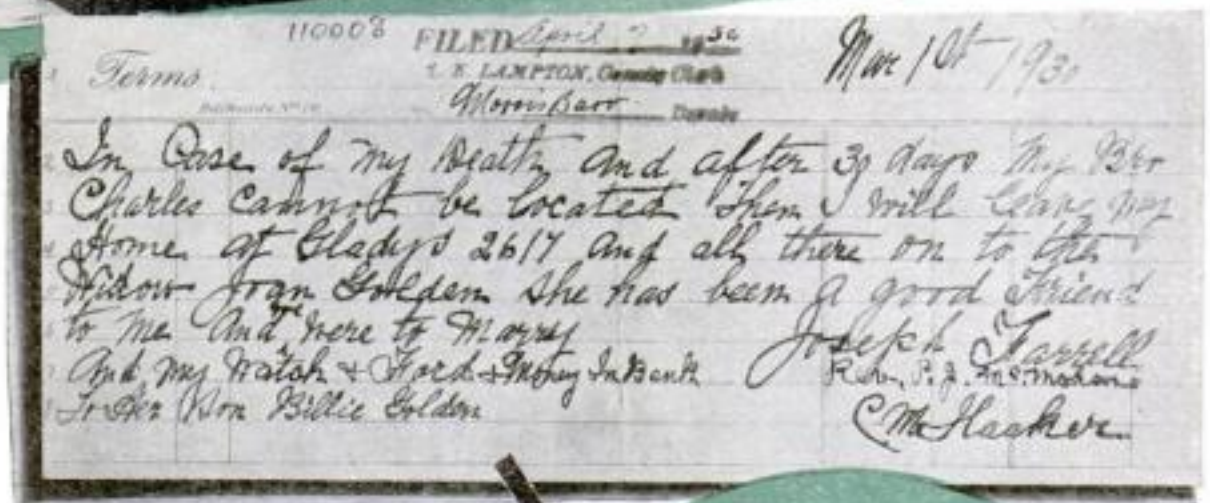 110008
FILED April 1930
L. E. LAMPTON, County Clerk
Morris Barr Deputy
Mar 1st 1930
Terms.
In Case of my Death and after 30 days my Bro
Charles cannot be located Then I will leave my
Home at Gladys 2617 and all there on to the
Widow Joan Golden She has been a good Friend
to me And we were to Marry
And my Watch & Ford & Money In Bank
To Her Son Billie Golden
Joseph Farrell
Rev. P. J. McMahon
C M Haaker